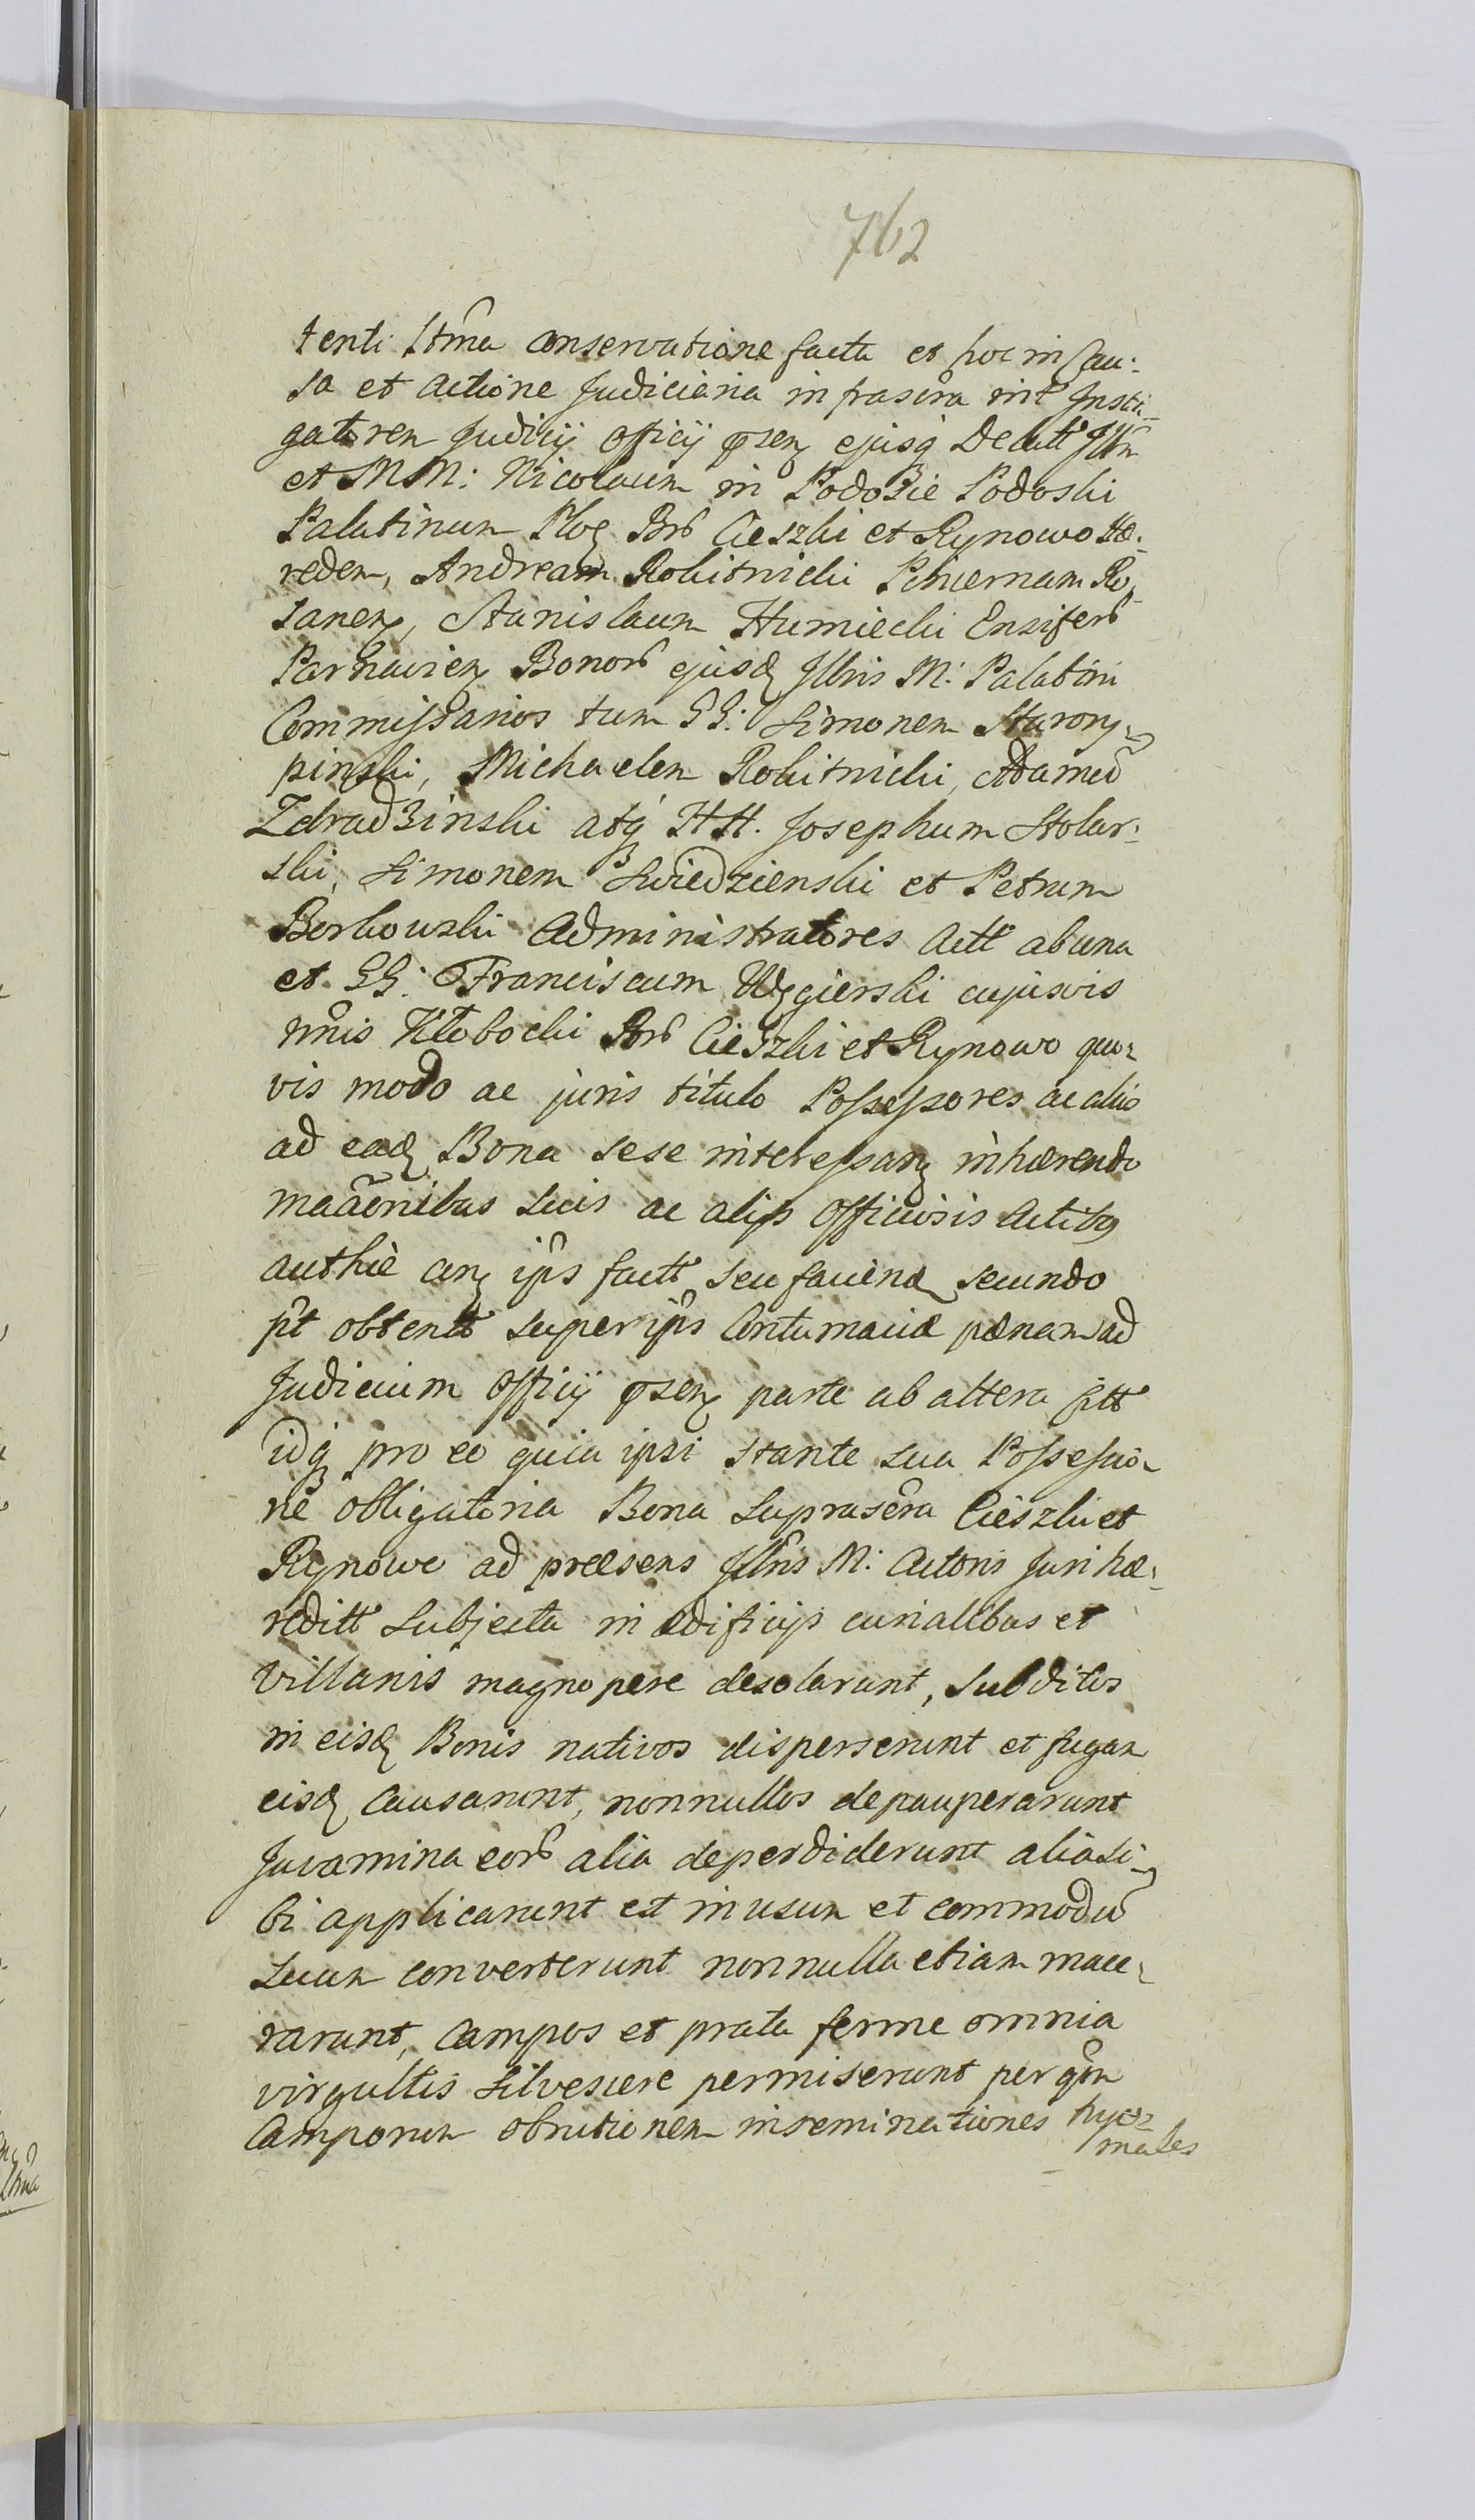 762
tenti Ltma conservatione facta et hoc in Cau:
sa et actione Judiciaria infrascra int Insti-
gatorem Judicij officij psen ejusq Delatt Illm
et MM: Nicolaum in Podosie Podoski
Palatinum Ploc Bor Cieszki et Rynowo Hæ:
redem, Andream Rokitnicki Pincernam Ro,
sanen, Stanislaum Humiecki Ensifer
Parnavien Bonor ejusd Illris M: Palatini
Commissarios tum GG: Simonem Starory-
pinski, Michaelem Rokitnicki, Adamu
Zdradzinski atq HH. Josephum Stolar:
ski, Simonem Swiedzienski et Petrum
Borkowski Administratores Actt ab una
et GG: Franciscum Węgierski cujusvis
nnis Kłobocki Bor Cieszki et Rynowo quo-
vis modo ac juris titulo Possessores ac alios
ad ead Bona sese interessan inhærendo
maaonibus suis ac alijs officiosis Actibg
authie cum ips factt seu faciend secundo
pt obtentt super ips Contumaciæ pænam ad
Judicium officij psen parte ab altera Citt
idq pro eo quia ipsi stante sua Possessio-
ne obligatoria Bona suprascra Cieszki et
Rynowo ad præsens Illris M: Actoris Juri hæ:
reditt subjecta in ædificijs curialibus et
villanis magnopere desolarunt, Subditos
in eisd Bonis nativos disperserunt et fugam
eisd causarunt, nonnullos depauperarunt
Juvamina eor alia deperdiderunt alia si-
bi applicarunt est in usum et commodu
suum converterunt nonnulla etiam mace-
rarunt, Campos et prata ferme omnia
virgultis silvescere permiserunt per qm
Camporum obrutionem inseminationes hye-
males